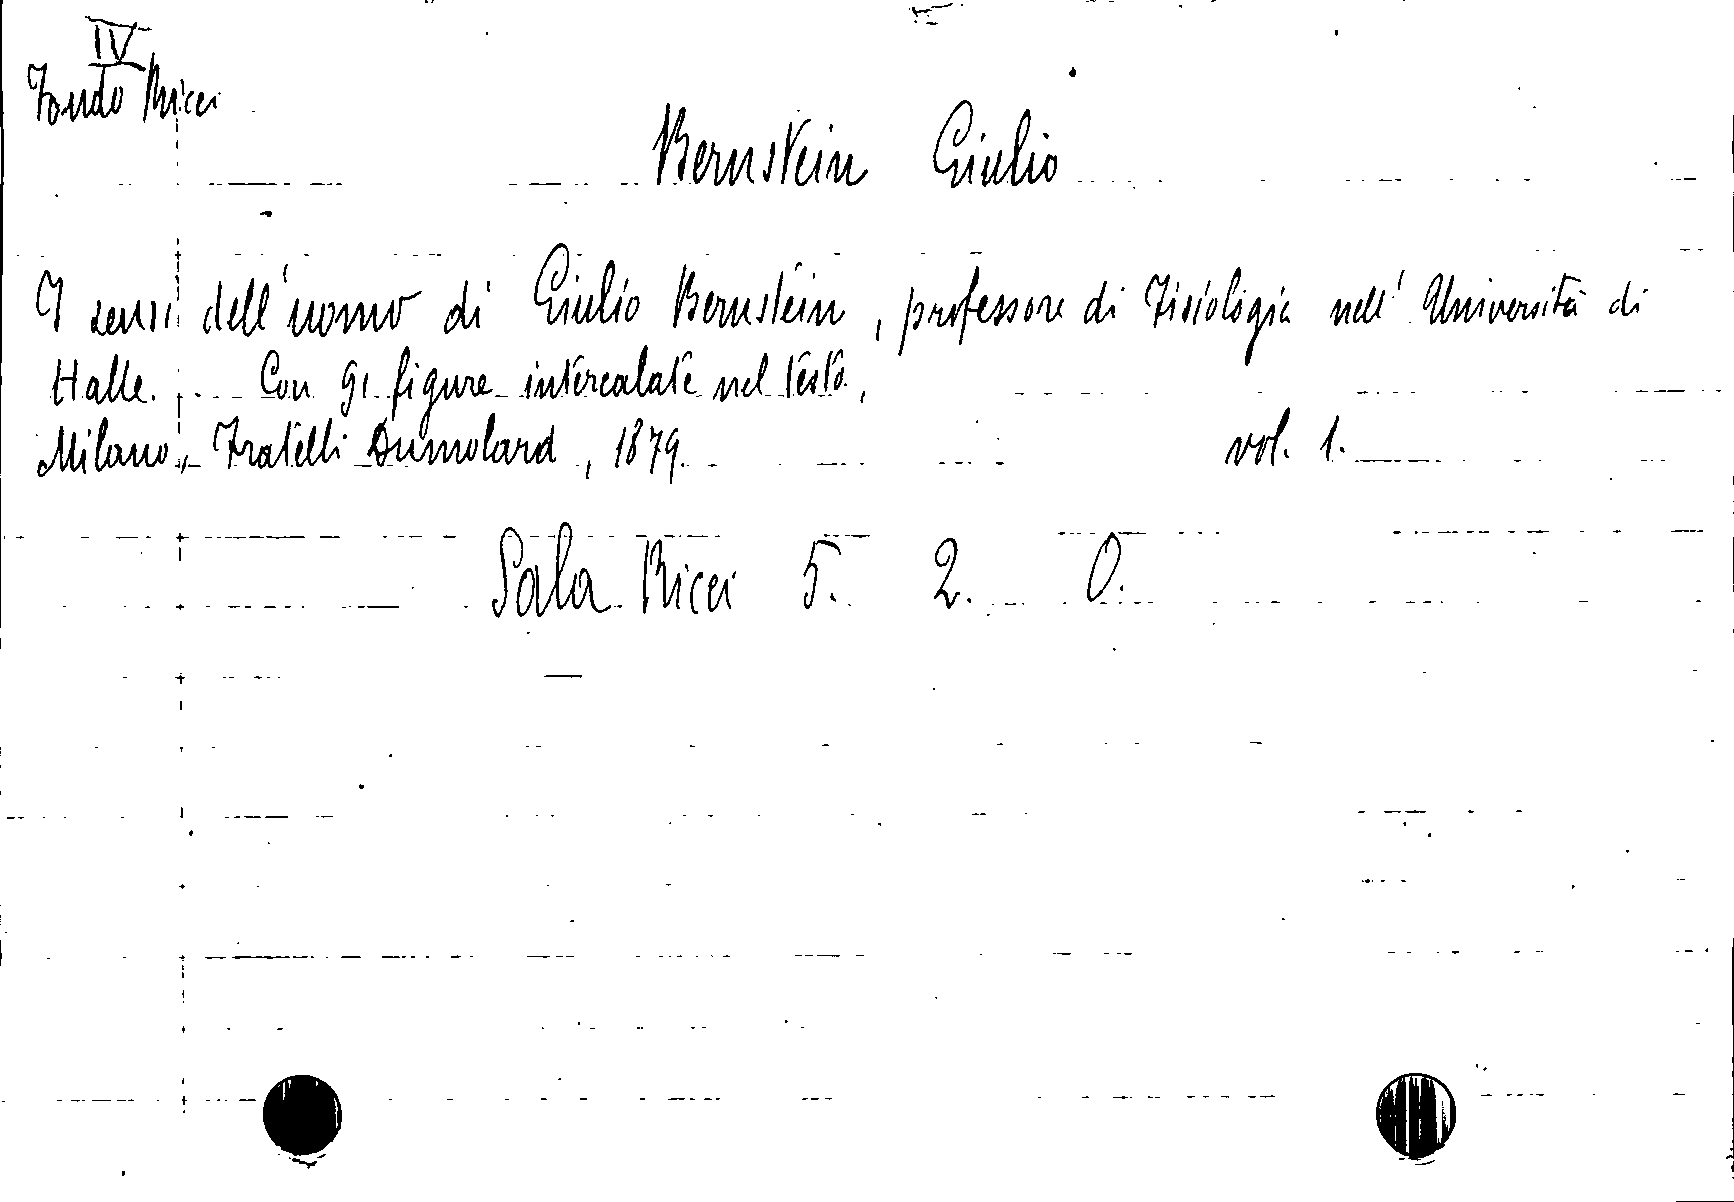 IV
Fondo Ricci
Bernstein Giulio
I sensi dell'uomo di Giulio Bernstein, professore di Fisiologia nell'Università di
Halle. . . Con 91 figure intercalate nel testo.
Milano, Fratelli Dumolard, 1879. vol. 1.
Sala Ricci 5. 2. 0.